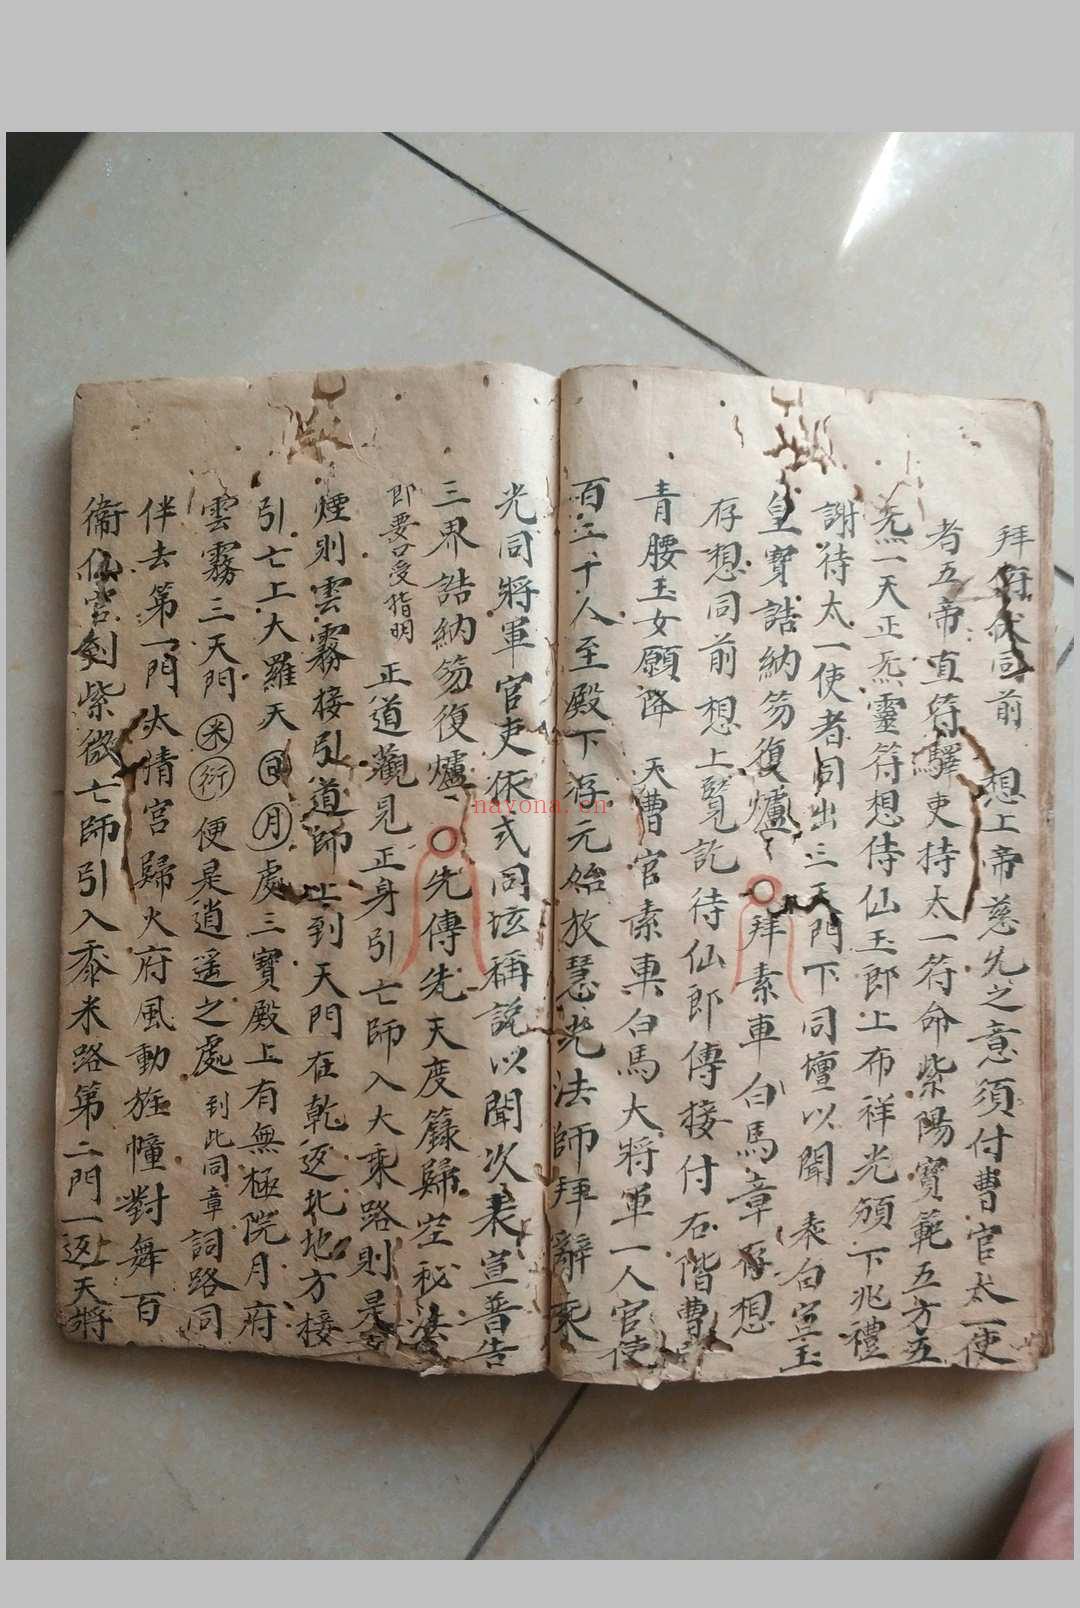 拜 伏同前 想上帝慈光之意須付曹官太一使
者五帝直符驛吏持太一符命紫陽寶範五方五
炁一天正炁靈符想侍仙玉郎上布祥光頒下兆禮
謝待太一使者同出三天門下同壇以聞 表白宣玉
皇寶誥納笏復爐 拜素車白馬章存想
存想同前想上覽訖待仙郎傳接付右階曹
青腰玉女願降 天曹官素車白馬大將軍一人官使
百二十人至殿下存元始放慧光法師拜辭乘
光同將軍官吏依式同壇稱說以聞次表宣普告
三界誥納笏復爐 先傳先天度籙歸空秘法
即要口受指明 正道觀見正身引亡師入大乘路則是
煙則雲霧接引道師上到天門在乾返北地方接
引亡上大羅天 日 月 處三寶殿上有無極院月府
雲霧三天門 米 衍 便是逍遥之處 到此同章 詞路同
伴去第一門太清宮歸火府風動旌幢對舞百
衞仙宮 紫微亡師引入黍米路第二門一返天將
nayona.cn